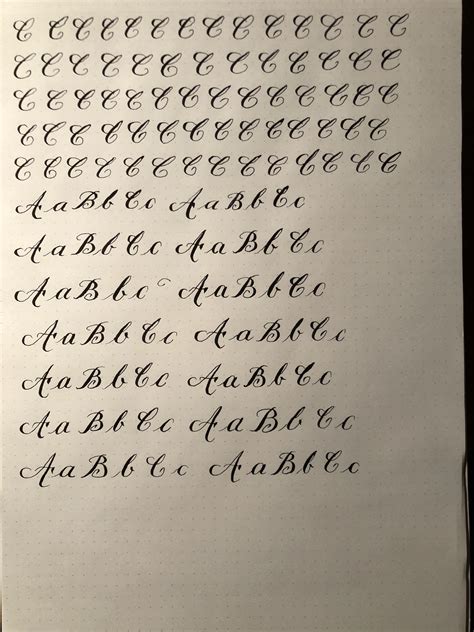 C C C C C C C C C C C C C C C
C C C C C C C C C C C C C
C C C C C C C C C C C C C C C
C C C C C C C C C C C C C C
C C C C C C C C C C C C C C
A a B b C c A a B b C c
A a B b C c A a B b C c
A a B b c A a B b C c
A a B b C c A a B b C c
A a B b C c A a B b C c
A a B b C c A a B b C c
A a B b C c A a B b C c